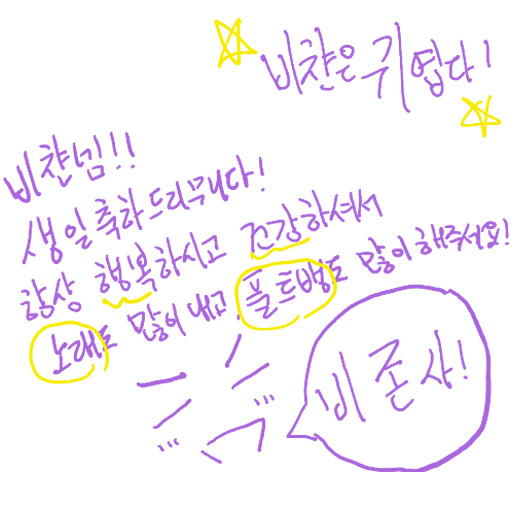 비챤은 귀엽다!
비챤님!!
생일 축하드리무니다!
항상 행복하시고 건강하셔서
노래도 많이 내고 플트뱅도 많이 해주세요!
비존사!